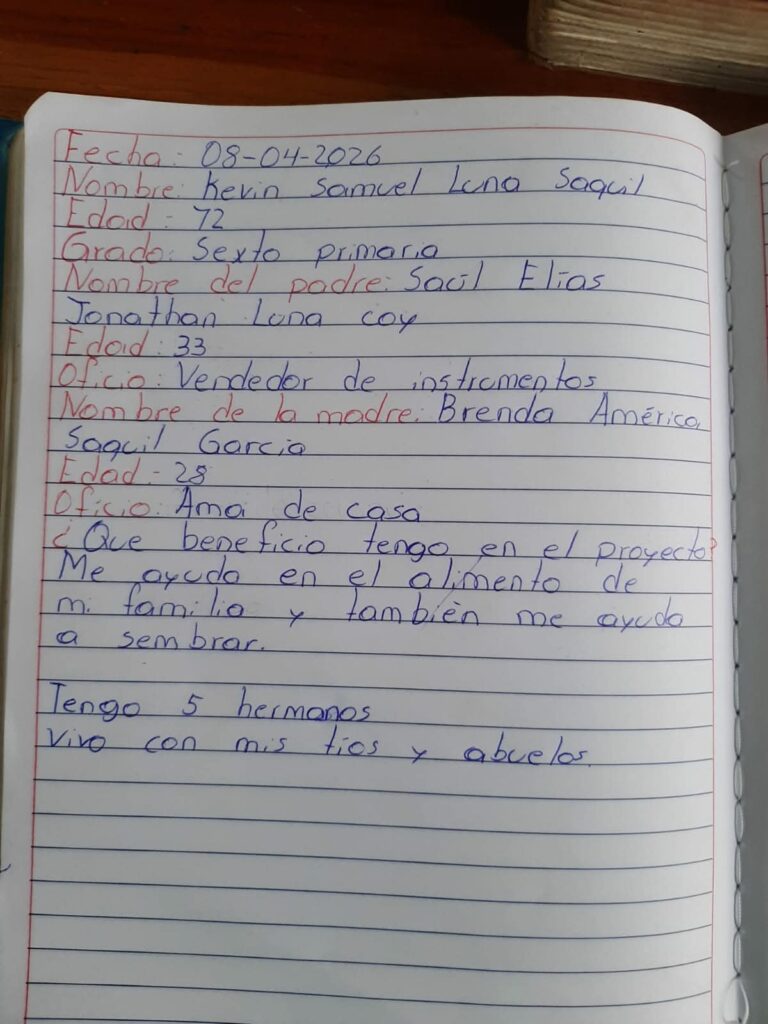 Fecha: 08-04-2026
Nombre: Kevin Samuel Luna Saquil
Edad: 12
Grado: Sexto primaria
Nombre del padre: Sacil Elias
Jonathan Luna coy
Edad: 33
Oficio: Vendedor de instrumentos
Nombre de la madre: Brenda América
Saquil Garcia
Edad: 28
Oficio: Ama de casa
¿Que beneficio tengo en el proyecto?
Me ayuda en el alimento de
mi familia y también me ayuda
a sembrar.
Tengo 5 hermanos
vivo con mis tios y abuelos.